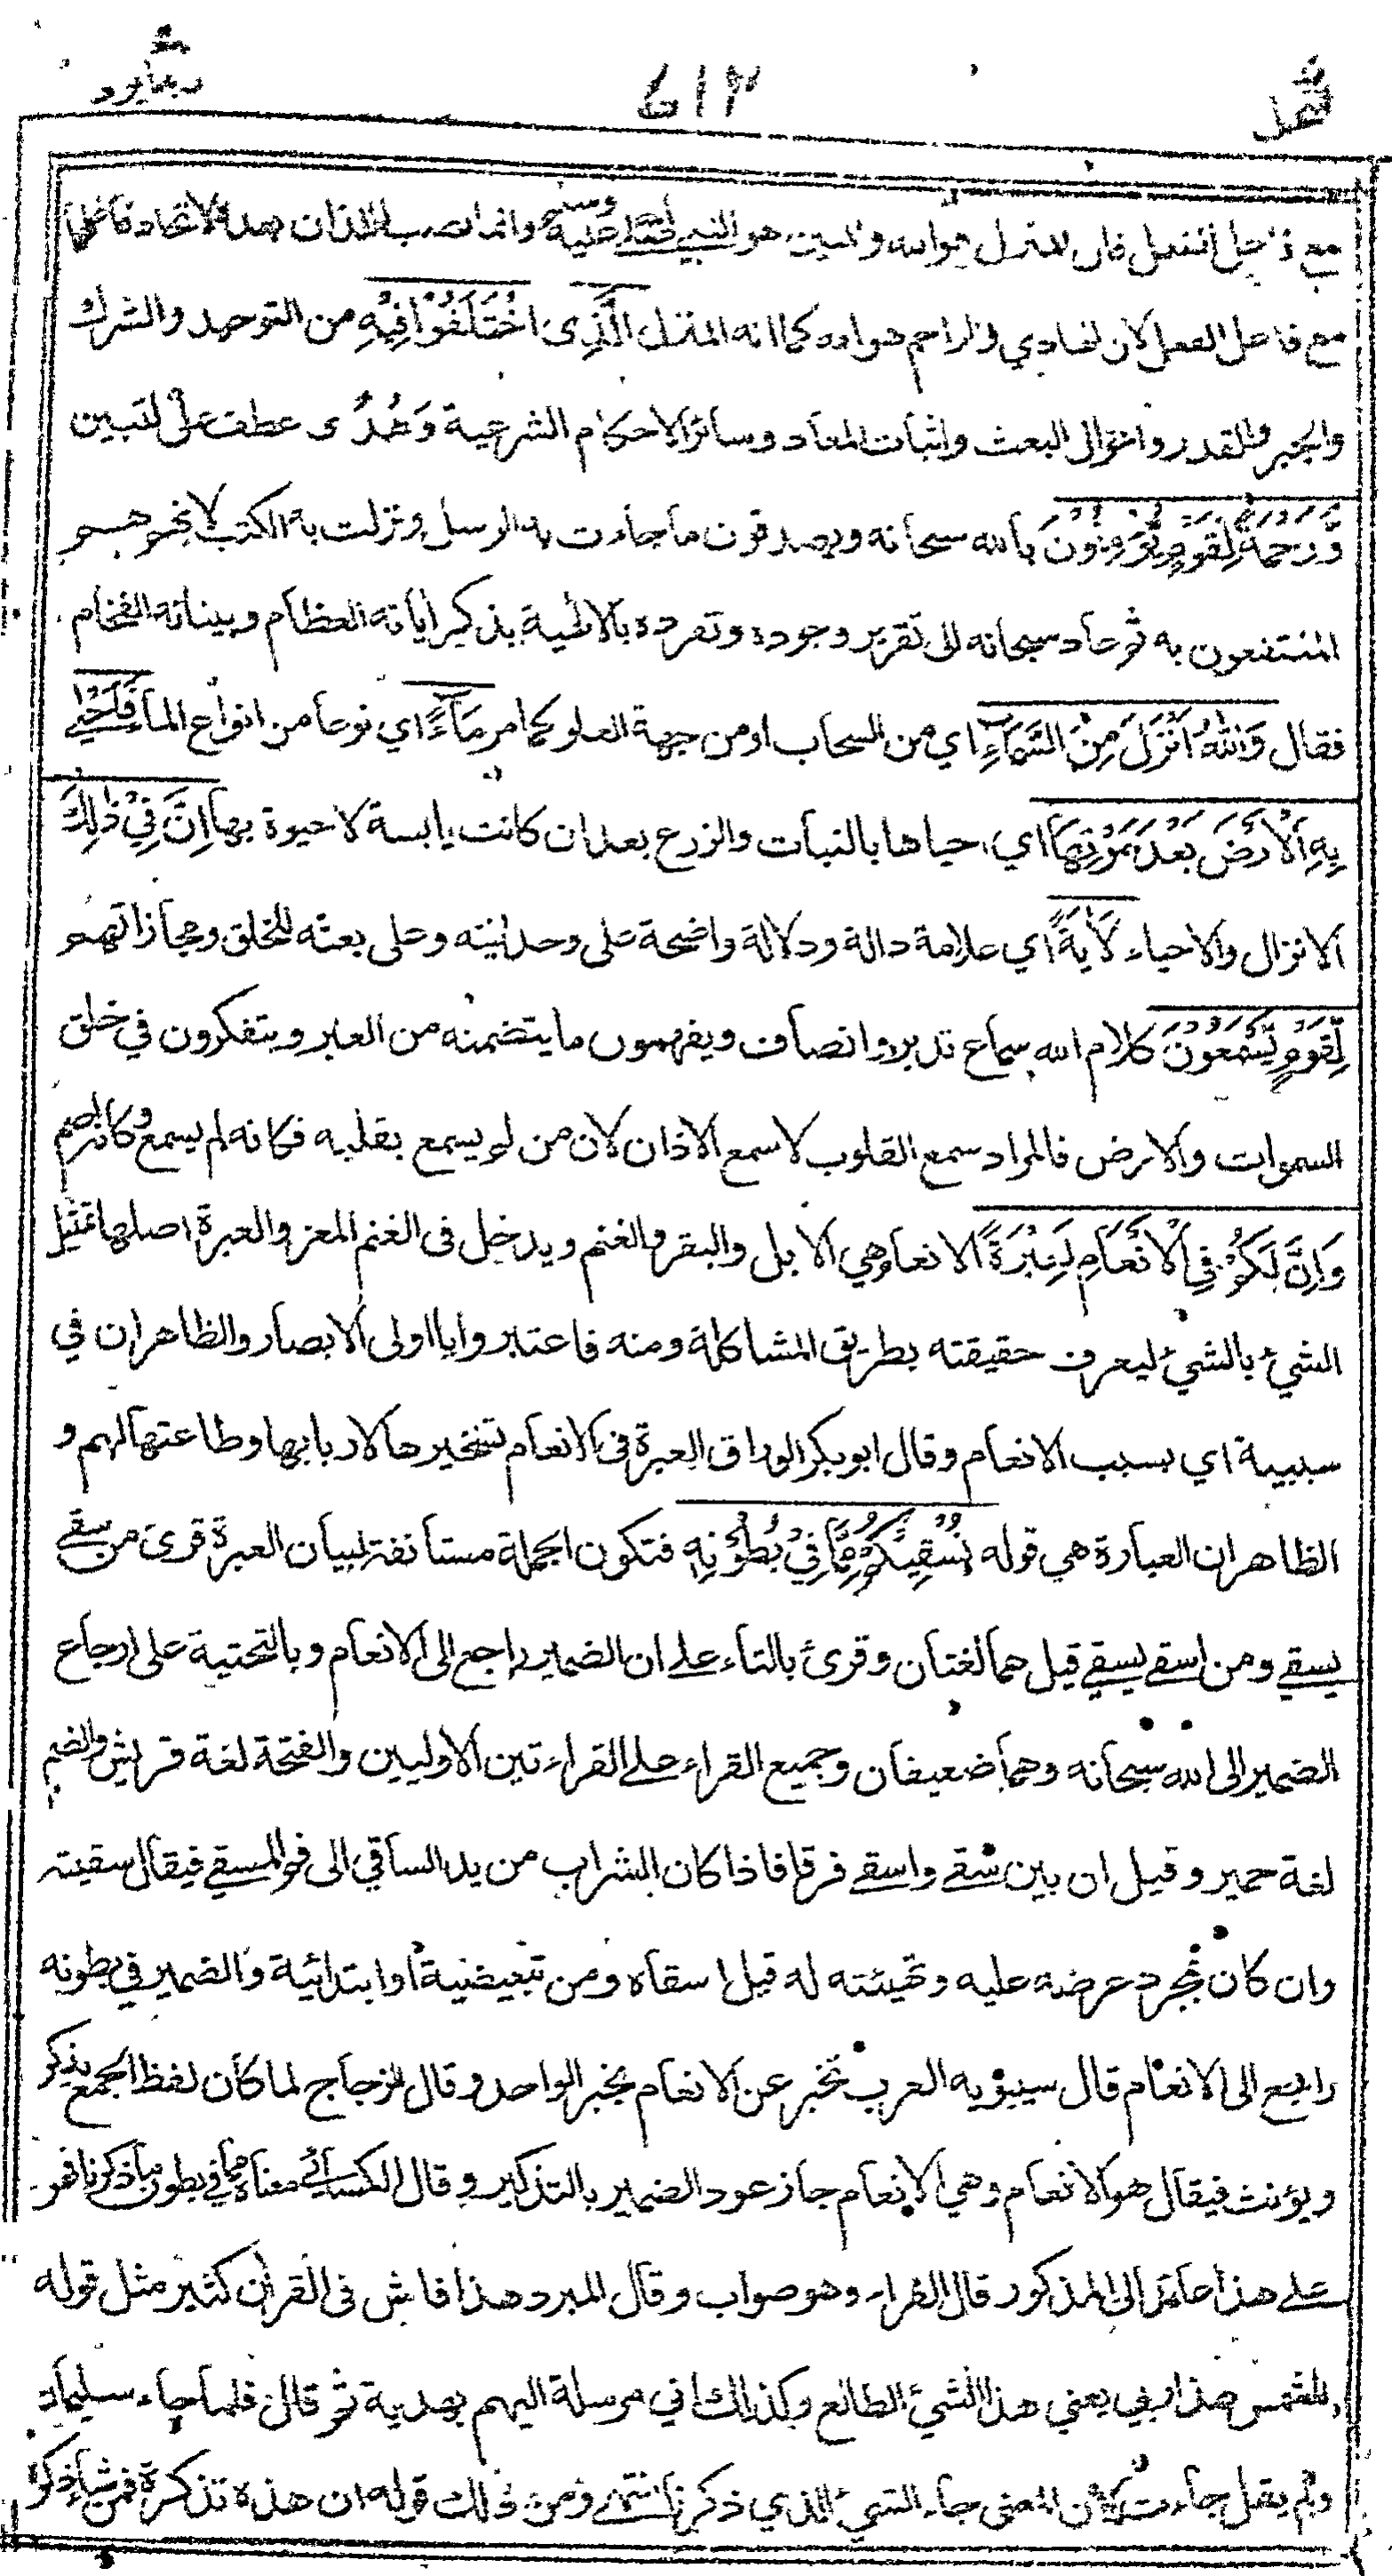 ربما يود ٦١٢ النحل
مع فاعل الفعل فان المنزل هو الله والمبين هو النبي صلى الله عليه وسلم وانما انتصب اللذان بعده لاتحاد فاعلهما
مع فاعل الفعل لان الهادي والراحم هو الله كما انه المنزل الَّذِى اخْتَلَفُوْا فِيْهِ من التوحيد والشرك
والجبر والقدر واحوال البعث واثبات المعاد وسائر الاحكام الشرعية وَهُدًى عطف على لتبين
وَّرَحْمَةً لِّقَوْمٍ يُّؤْمِنُوْنَ بالله سبحانه ويصدقون ما جاءت به الرسل ونزلت به الكتب لانهم هم
المنتفعون به ثم عاد سبحانه الى تقرير وجوده وتفرده بالالهية بذكر اياته العظام وبيناته الفخام
فقال وَاللّٰهُ اَنْزَلَ مِنَ السَّمَآءِ اي من السحاب او من جهة العلو كما مر مَآءً اي نوعا من انواع الماء فَاَحْيَى
بِهِ الْاَرْضَ بَعْدَ مَوْتِهَا اي احياها بالنبات والزرع بعد ان كانت يابسة لا حيوة بها اِنَّ فِيْ ذٰلِكَ
الانزال والاحياء لَاٰيَةً اي علامة دالة ودلالة واضحة على وحدانيته وعلى بعثه للخلق ومجازاتهم
لِّقَوْمٍ يَّسْمَعُوْنَ كلام الله سماع تدبر وانصاف ويفهمون ما يتضمنه من العبر ويتفكرون في خلق
السموات والارض فالمراد سمع القلوب لا سمع الاذان لان من لم يسمع بقلبه فكانه لم يسمع وكانه اصم
وَاِنَّ لَكُمْ فِي الْاَنْعَامِ لَعِبْرَةً الانعام هي الابل والبقر والغنم ويدخل فى الغنم المعز والعبرة اصلها تمثيل
الشيء بالشيء ليعرف حقيقته بطريق المشاكلة ومنه فاعتبروا يا اولى الابصار والظاهر ان في
سببية اي بسبب الانعام وقال ابو بكر الوراق العبرة فى الانعام تسخيرها لاربابها وطاعتها لهم و
الظاهر ان العبارة هي قوله نُسْقِيْكُمْ مِّمَّا فِيْ بُطُوْنِهٖ فتكون الجملة مستأنفة لبيان العبرة قرئ من سقى
يسقي ومن اسقى يسقي قيل هما لغتان وقرئ بالتاء على ان الضمير راجع الى الانعام وبالتحتية على ارجاع
الضمير الى الله سبحانه وهما ضعيفان وجميع القراء على القراءتين الاوليين والفتحة لغة قريش والضم
لغة حمير وقيل ان بين سقى واسقى فرقا فاذا كان الشراب من يد الساقي الى فم المسقي فيقال سقيته
وان كان بمجرد عرضه عليه وتهيئته له قيل اسقاه ومن تبعيضية او ابتدائية والضمير في بطونه
راجع الى الانعام قال سيبويه العرب تخبر عن الانعام بخبر الواحد وقال الزجاج لما كان لفظ الجمع يذكر
ويؤنث فيقال هو الانعام وهي الانعام جاز عود الضمير بالتذكير وقال الكسائي معناه مما في بطون ما ذكرنا فهو
على هذا عائد الى المذكور قال الفراء وهو صواب وقال المبرد هذا فاش فى القران كثير مثل قوله
للشمس هذا ربي يعني هذا الشيء الطالع وكذلك اني مرسلة اليهم بهدية ثم قال فلما جاء سليمان
ولم يقل جاءت لان المعنى جاء الشيء الذي ذكرنا انتهى ومن ذلك قوله ان هذه تذكرة فمن شاء ذكره